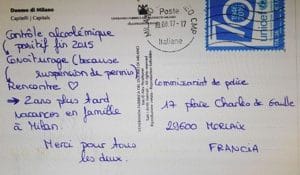 Duomo di Milano
Capitelli | Capitals
Contrôle alcoolémique
positif fin 2015
Covoiturage (because
suspension de permis)
Rencontre ♡
→ 2 ans plus tard
vacances en famille
à Milan.
Merci pour tous
les deux.
Poste
Italiane
70
unicef
Commissariat de police
17 place Charles de Gaulle
29600 MORLAIX
FRANCIA